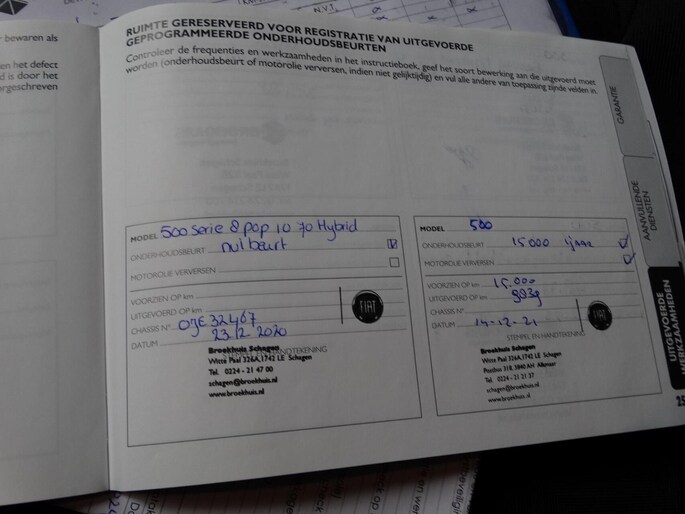 r bewaren als
en het defect
d is door het
orgeschreven
N.V.T.
RUIMTE GERESERVEERD VOOR REGISTRATIE VAN UITGEVOERDE
GEPROGRAMMEERDE ONDERHOUDSBEURTEN
Controleer de frequenties en werkzaamheden in het instructieboek, geef het soort bewerking aan die uitgevoerd moet
worden (onderhoudsbeurt of motorolie verversen, indien niet gelijktijdig) en vul alle andere van toepassing zijnde velden in.
GARANTIE
AANVULLENDE
DIENSTEN
UITGEVOERDE
WERKZAAMHEDEN
MODEL 500 Serie 8 pop 10 70 Hybrid
ONDERHOUDSBEURT nulbeurt
MOTOROLIE VERVERSEN
VOORZIEN OP km
UITGEVOERD OP km
CHASSIS N° 0JE32467
DATUM 23.12.2020
FIAT
STEMPEL EN HANDTEKENING
Broekhuis Schagen
Witte Paal 326A, 1742 LE Schagen
Tel. 0224 - 21 47 00
schagen@broekhuis.nl
www.broekhuis.nl
MODEL 500
ONDERHOUDSBEURT 15000 1jaar
MOTOROLIE VERVERSEN
VOORZIEN OP km 15.000
UITGEVOERD OP km 9839
CHASSIS N°
DATUM 14-12-21
FIAT
STEMPEL EN HANDTEKENING
Broekhuis Schagen
Witte Paal 326A, 1742 LE Schagen
Postbus 318, 1840 AH Alkmaar
Tel. 0224 - 21 21 57
schagen@broekhuis.nl
www.broekhuis.nl
25